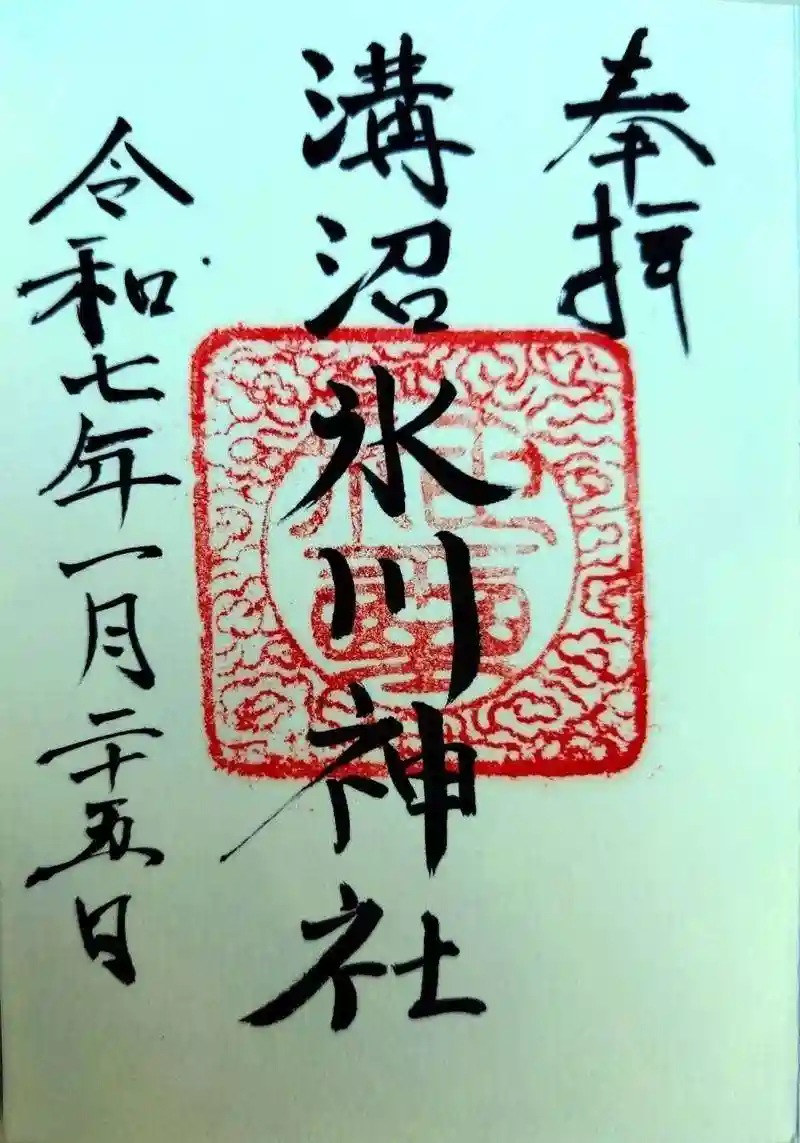 奉拝
溝沼氷川神社
令和七年一月二十五日